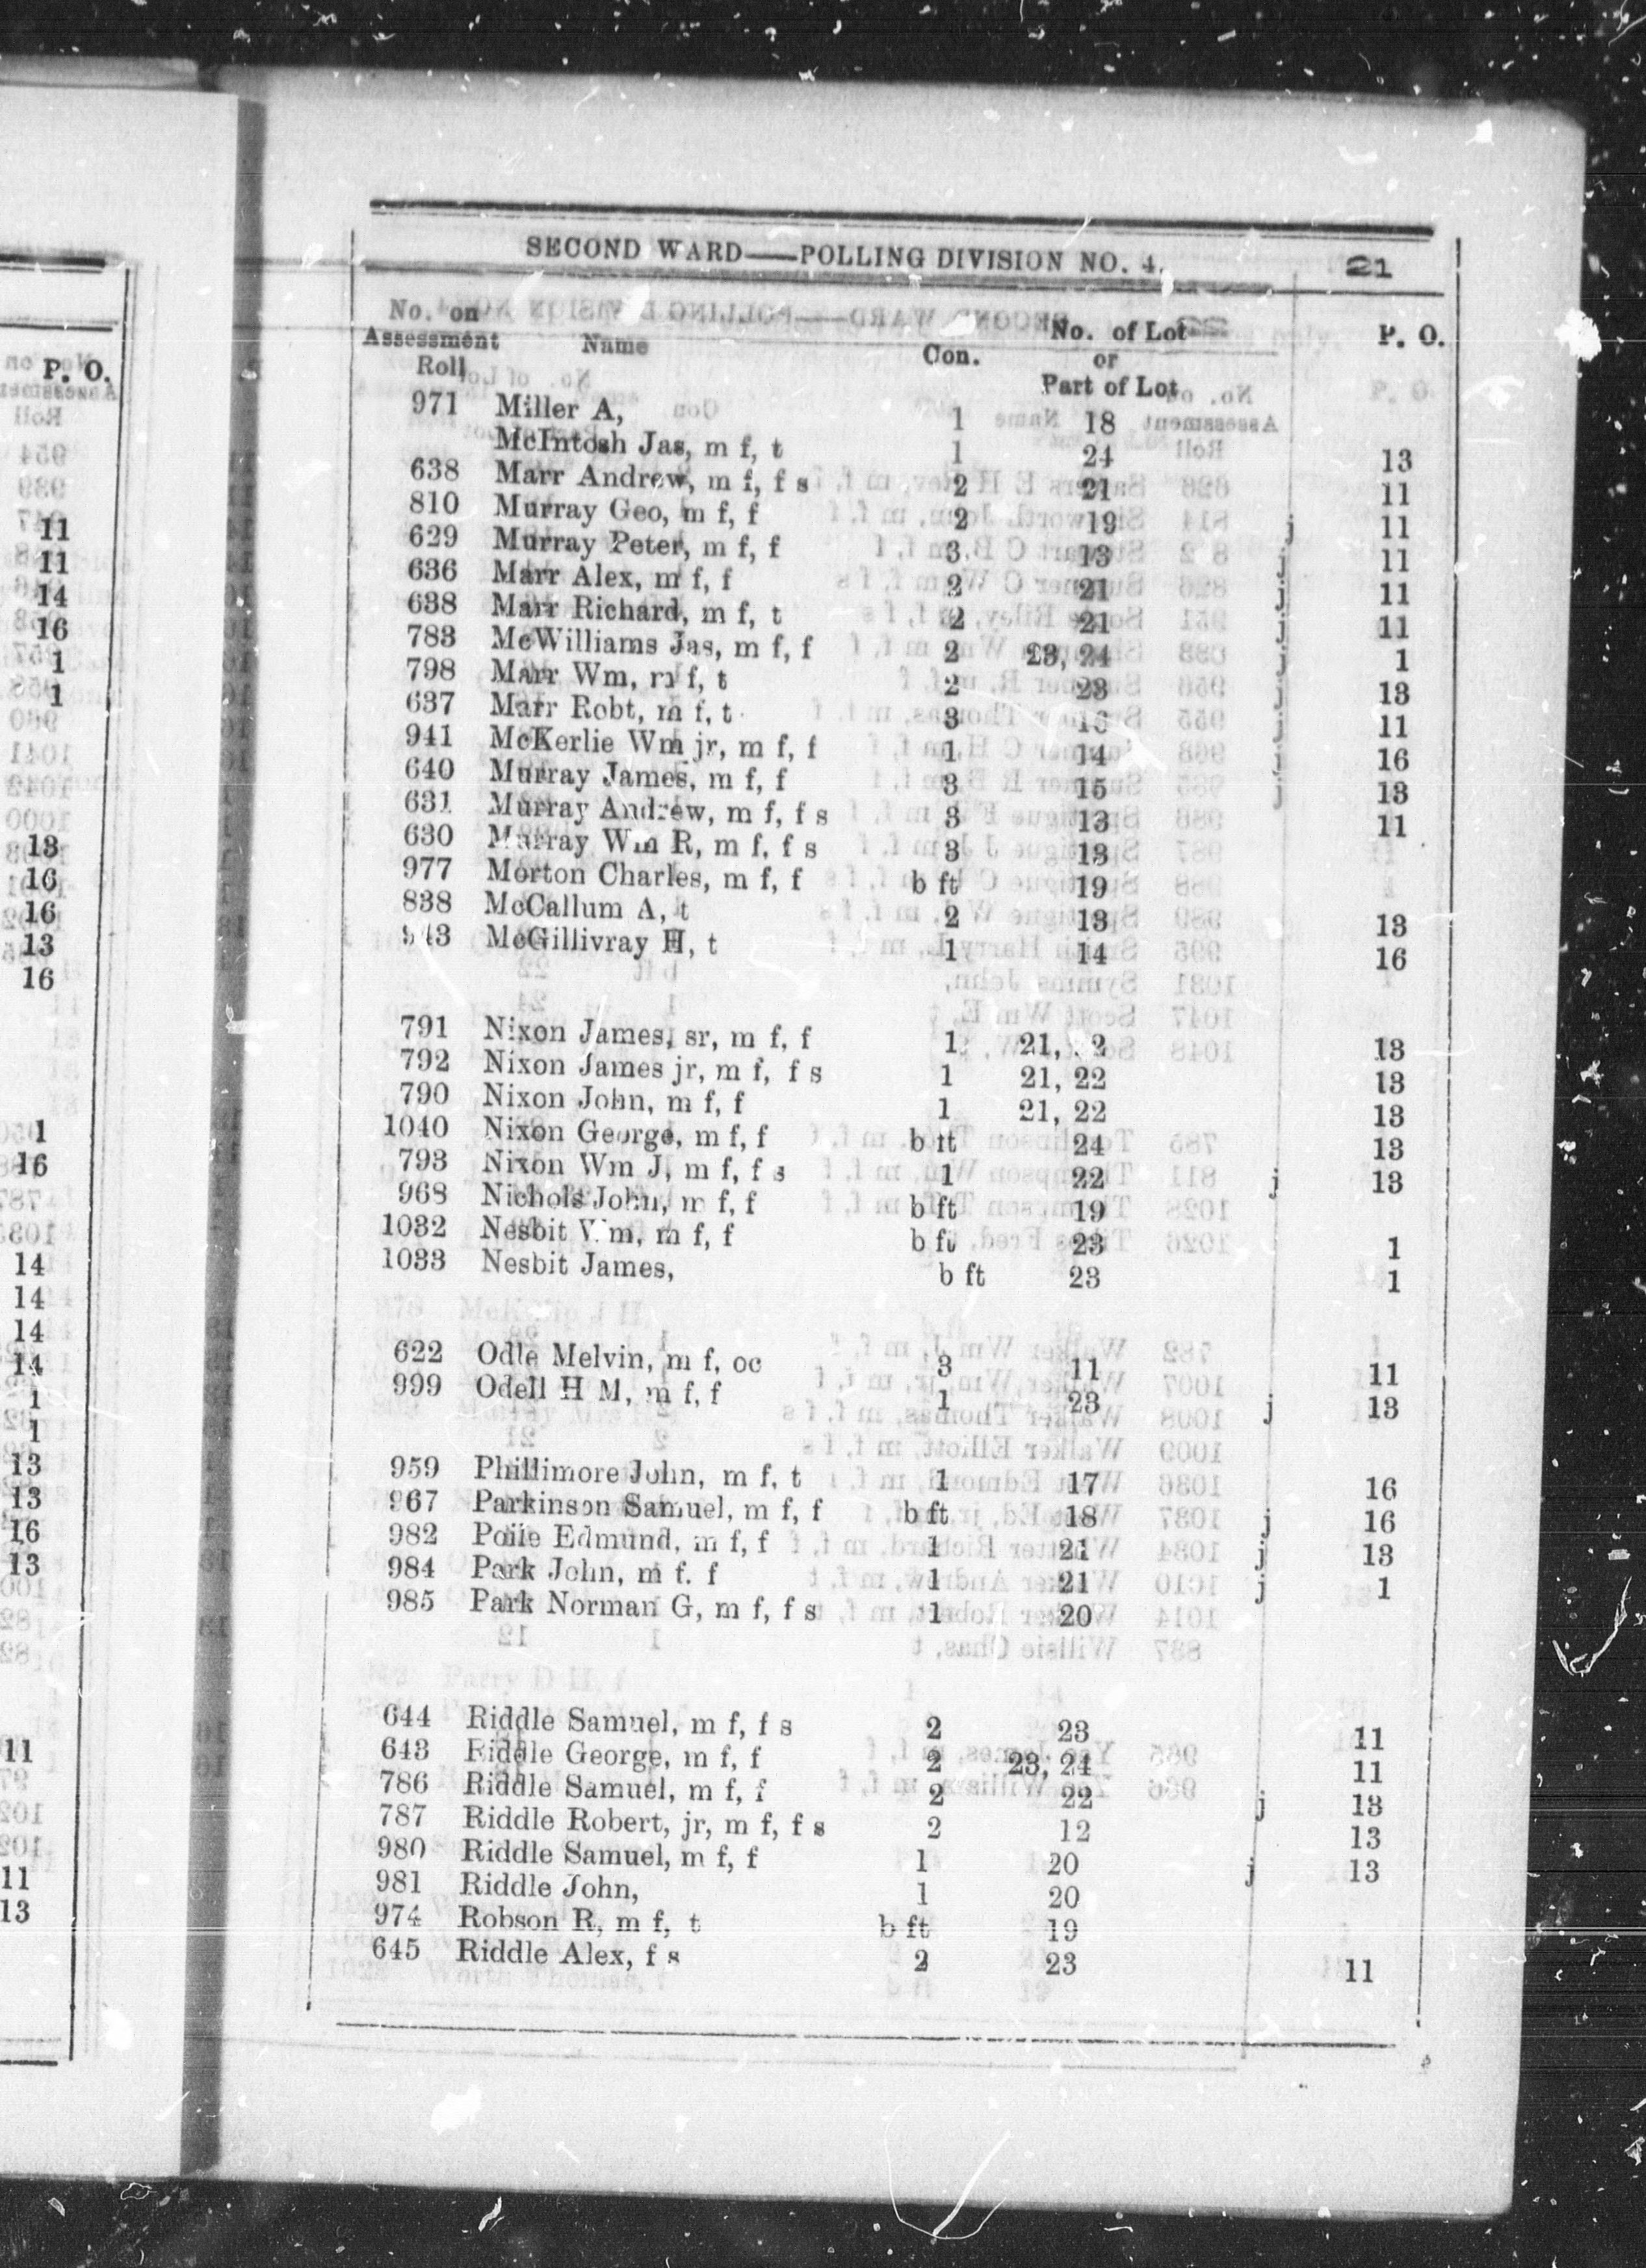 P. O.
11
11
14
16
1
1
13
16
16
13
16
1
16
14
14
14
14
1
1
13
13
16
13
11
11
13
SECOND WARD——POLLING DIVISION NO. 4. 21
No. on Assessment Roll Name Con. No. of Lot or Part of Lot P. O.
971 Miller A, 1 18
McIntosh Jas, m f, t 1 24 13
638 Marr Andrew, m f, f s 2 21 11
810 Murray Geo, m f, f 2 19 j 11
629 Murray Peter, m f, f 3 13 j 11
636 Marr Alex, m f, f 2 21 j 11
638 Marr Richard, m f, t 2 21 j 11
783 McWilliams Jas, m f, f 2 23, 24 j 1
798 Marr Wm, m f, t 2 23 j 13
637 Marr Robt, m f, t 3 j 11
941 McKerlie Wm jr, m f, f 1 14 j 16
640 Murray James, m f, f 3 15 j 13
631 Murray Andrew, m f, f s 3 13 11
630 Murray Wm R, m f, f s 3 13
977 Morton Charles, m f, f b ft 19
838 McCallum A, t 2 13 13
943 McGillivray H, t 1 14 16
791 Nixon James, sr, m f, f 1 21, 22 13
792 Nixon James jr, m f, f s 1 21, 22 13
790 Nixon John, m f, f 1 21, 22 13
1040 Nixon George, m f, f b ft 24 13
793 Nixon Wm J, m f, f s 1 22 j 13
968 Nichols John, m f, f b ft 19
1032 Nesbit Wm, m f, f b ft 23 1
1033 Nesbit James, b ft 23 1
622 Odle Melvin, m f, oc 3 11 11
999 Odell H M, m f, f 1 23 j 13
959 Phillimore John, m f, t 1 17 16
967 Parkinson Samuel, m f, f b ft 18 j 16
982 Poile Edmund, m f, f 1 21 j 13
984 Park John, m f. f 1 21 j 1
985 Park Norman G, m f, f s 1 20
644 Riddle Samuel, m f, f s 2 23 11
643 Riddle George, m f, f 2 23, 24 11
786 Riddle Samuel, m f, f 2 22 j 13
787 Riddle Robert, jr, m f, f s 2 12 13
980 Riddle Samuel, m f, f 1 20 j 13
981 Riddle John, 1 20
974 Robson R, m f, t b ft 19
645 Riddle Alex, f s 2 23 11